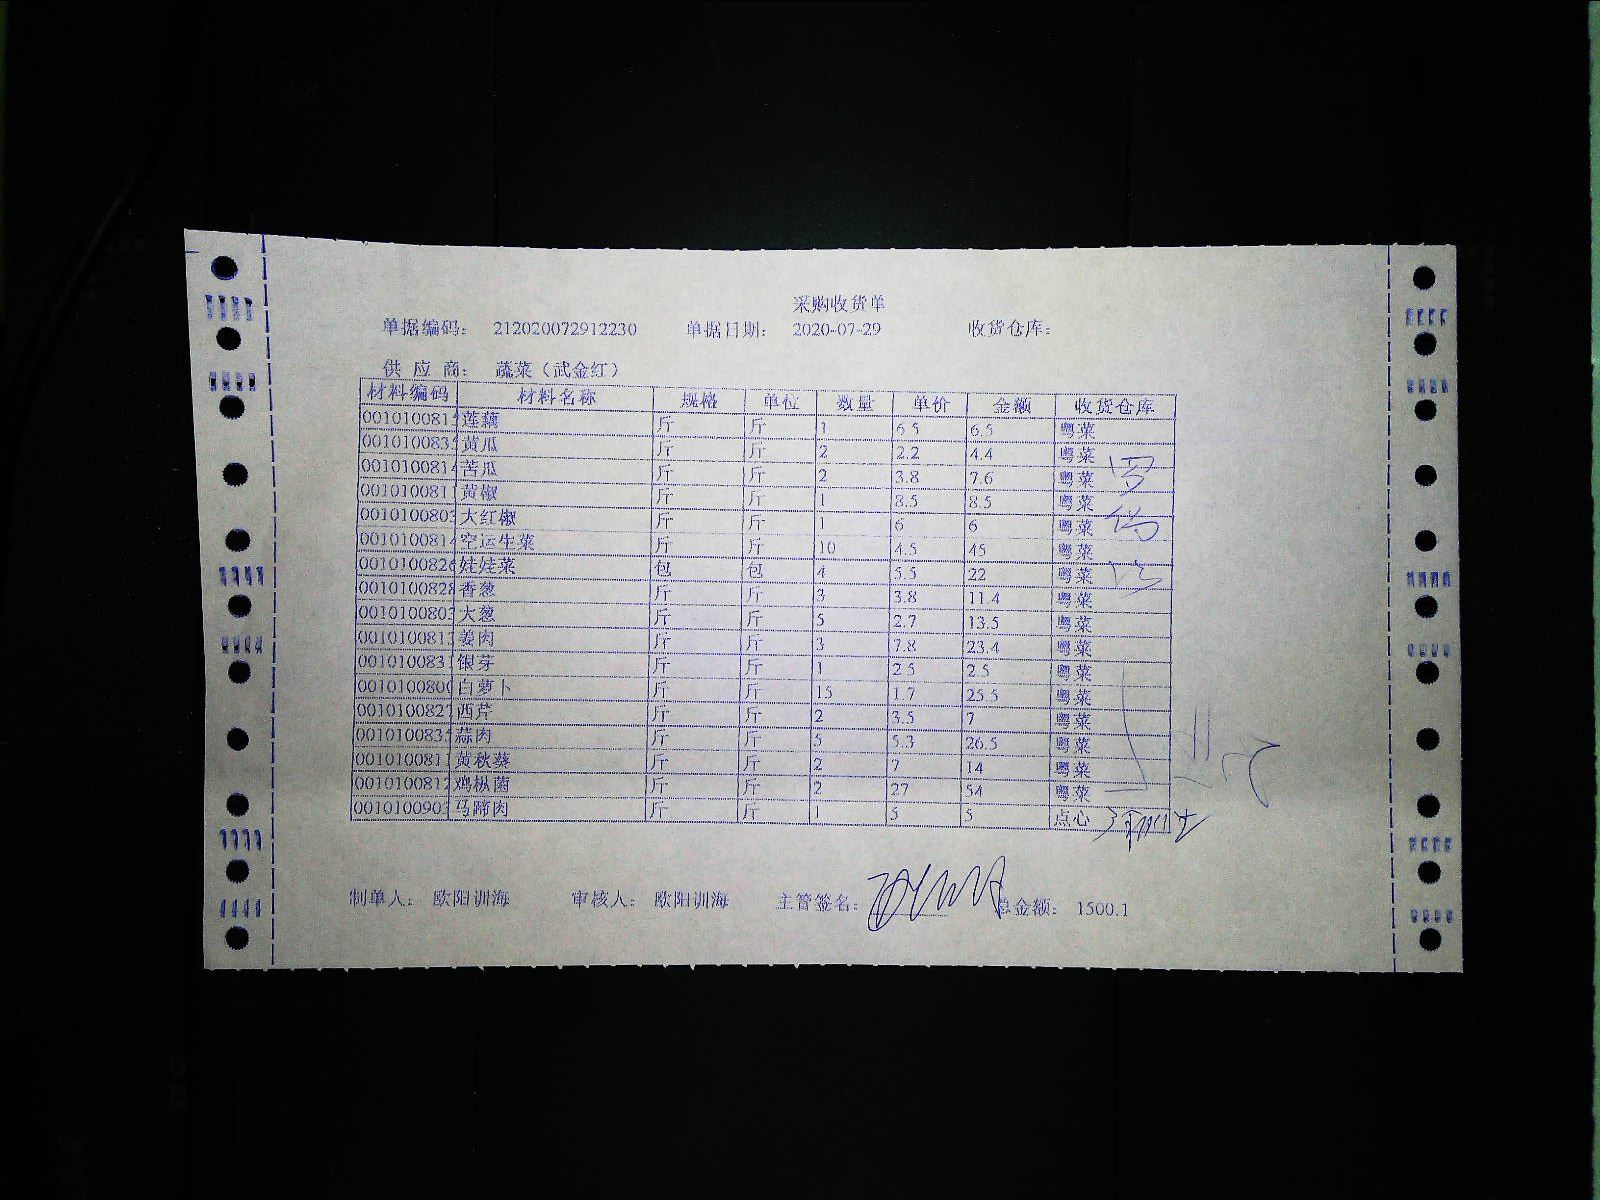 采购收货单
单据编码： 212020072912230 单据日期： 2020-07-29 收货仓库：
供 应 商： 蔬菜（武金红）
材料编码 材料名称 规格 单位 数量 单价 金额 收货仓库
莲藕 斤 斤 1 6.5 6.5 粤菜
黄瓜 斤 斤 2 2.2 4.4 粤菜
苦瓜 斤 斤 2 3.8 7.6 粤菜
黄椒 斤 斤 1 8.5 8.5 粤菜
大红椒 斤 斤 1 6 6 粤菜
空运生菜 斤 斤 10 4.5 45 粤菜
娃娃菜 包 包 4 5.5 22 粤菜
0010100828 香葱 斤 斤 3 3.8 11.4 粤菜
大葱 斤 斤 5 2.7 13.5 粤菜
姜肉 斤 斤 3 7.8 23.4 粤菜
银芽 斤 斤 1 2.5 2.5 粤菜
白萝卜 斤 斤 15 1.7 25.5 粤菜
西芹 斤 斤 2 3.5 7 粤菜
蒜肉 斤 斤 5 5.3 26.5 粤菜
黄秋葵 斤 斤 2 7 14 粤菜
鸡枞菌 斤 斤 2 27 54 粤菜
马蹄肉 斤 斤 1 5 5 点心
制单人： 欧阳训海 审核人： 欧阳训海 主管签名： 总金额： 1500.1